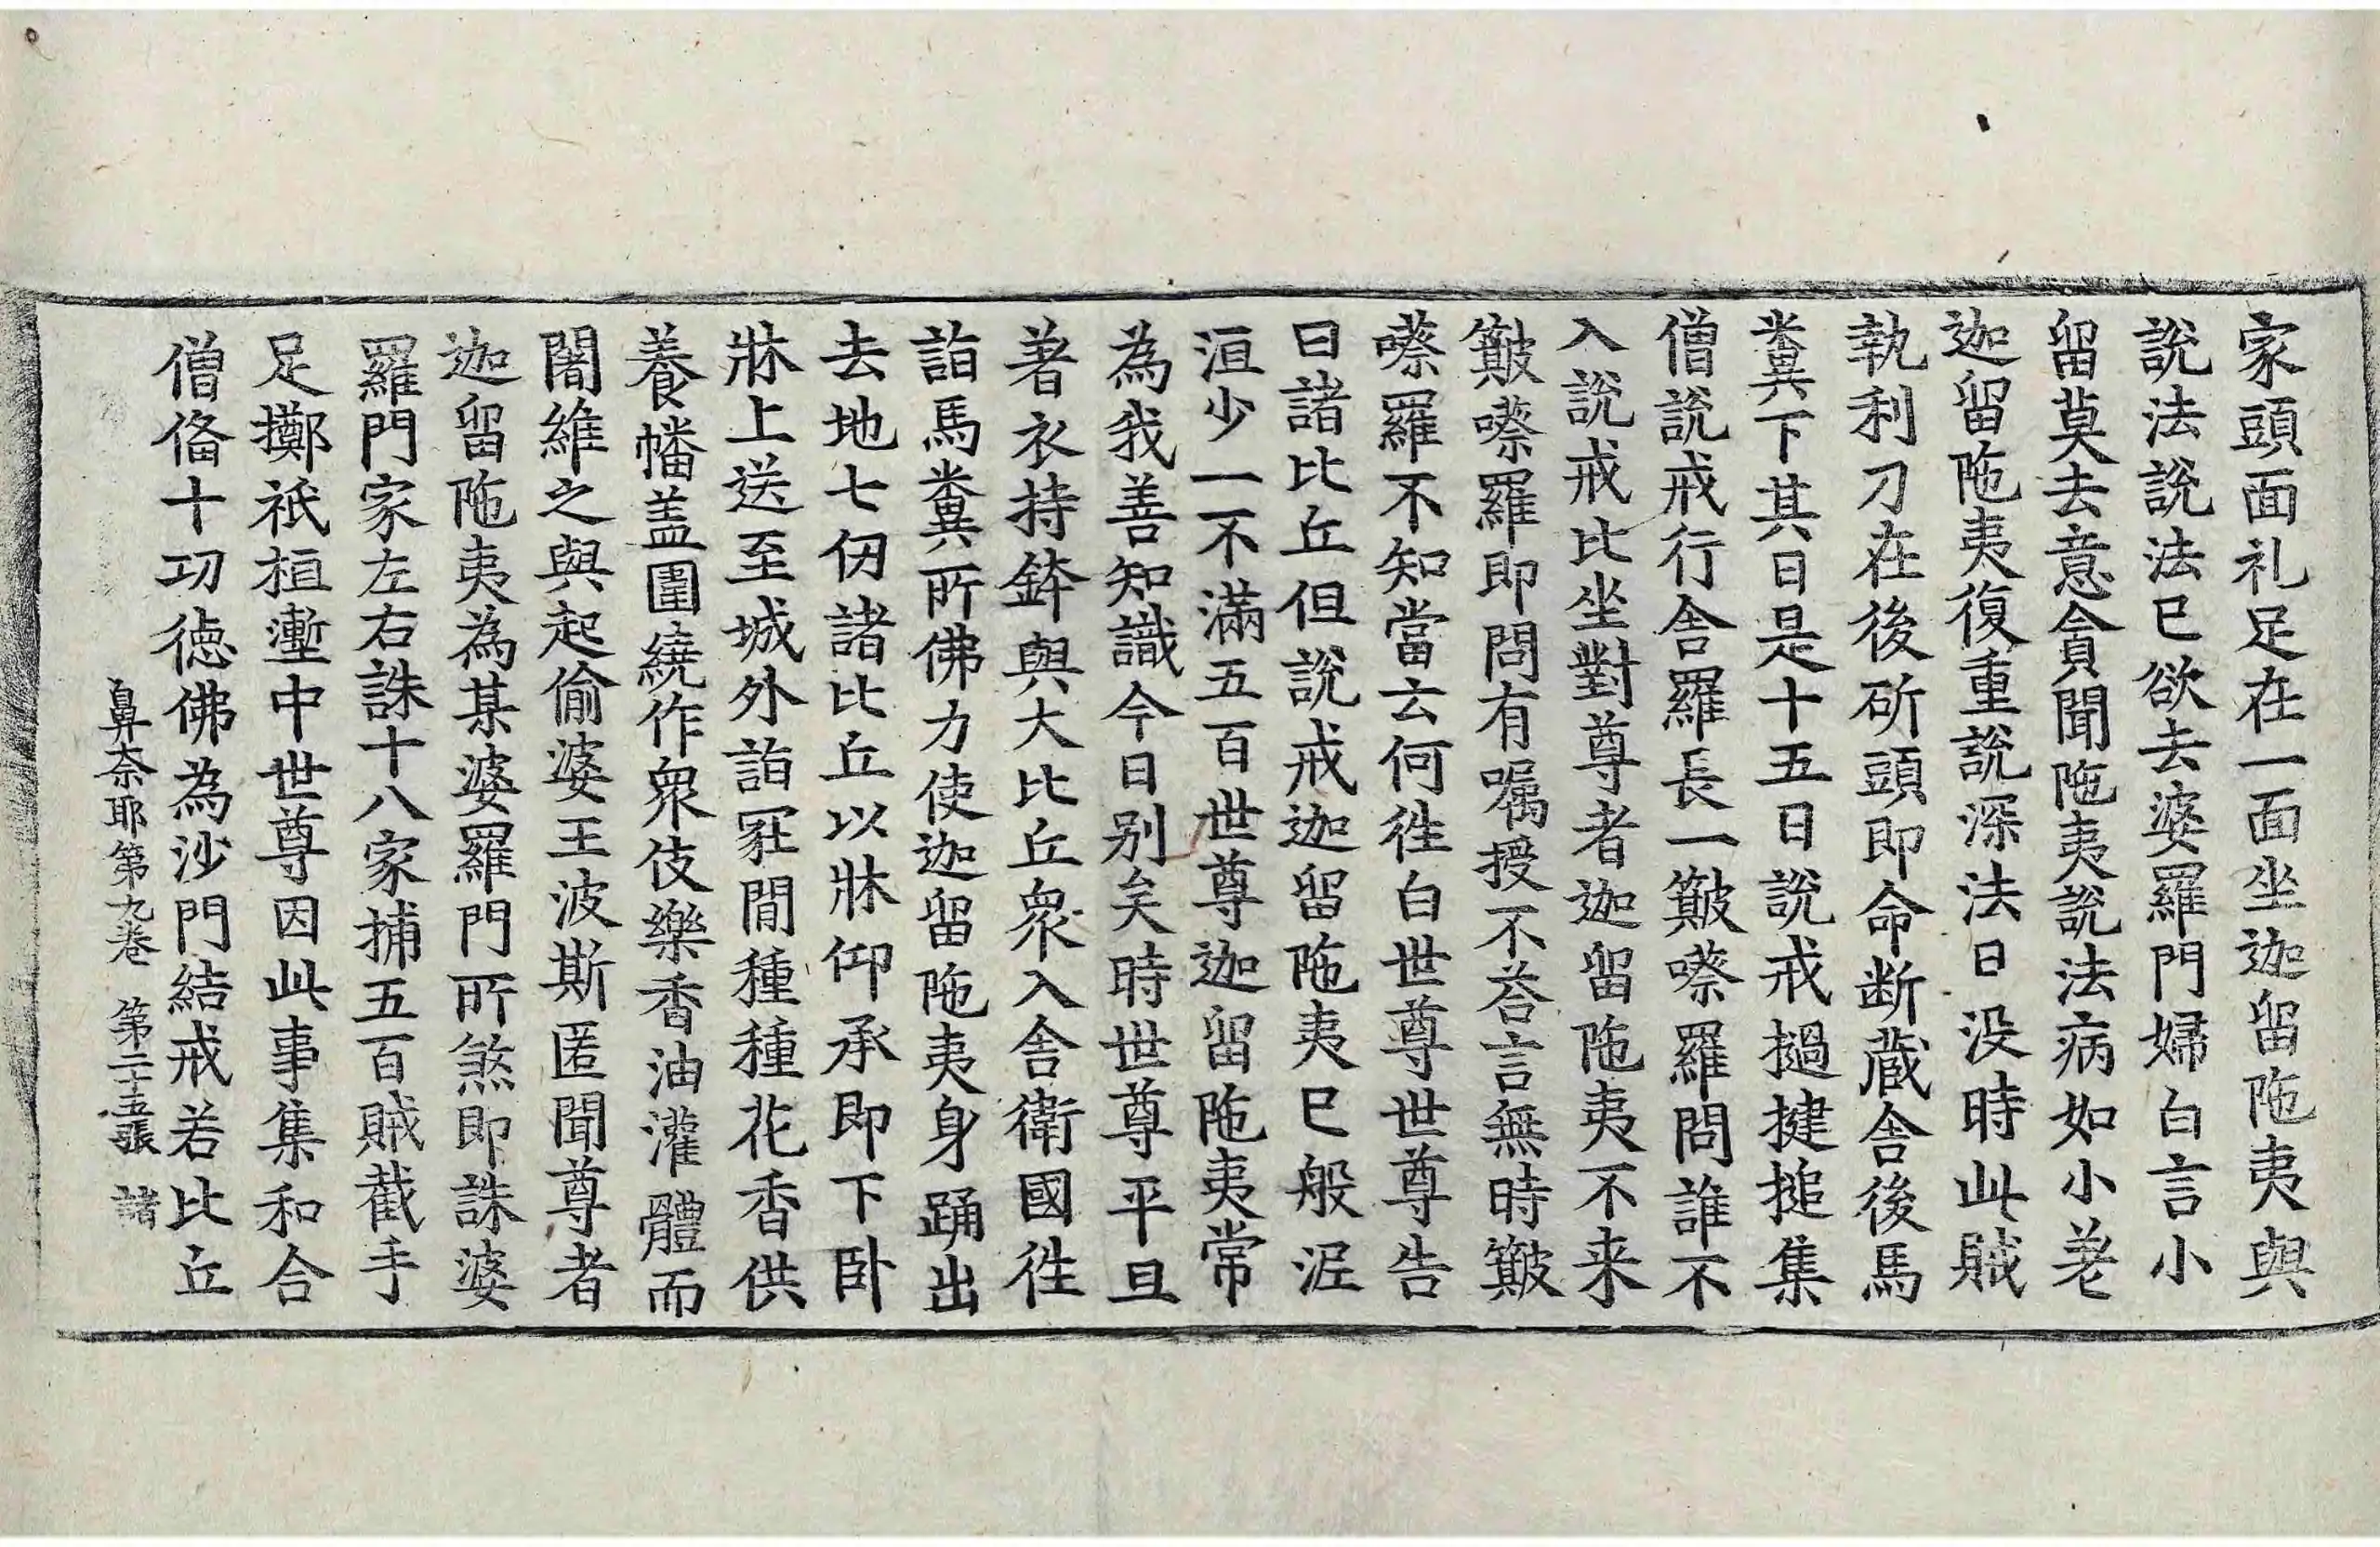 家頭面礼足在一面坐迦留陁夷與
說法說法已欲去婆羅門婦白言小
留莫去意貪聞陁夷說法病如小差
迦留陁夷復重說深法日没時此賊
執利刀在後斫頭即命断蔵舎後馬
糞下其日是十五日說戒撾揵搥集
僧說戒行舎羅長一簸嗏羅問誰不
入說戒比坐對尊者迦留陁夷不来
簸嗏羅即問有嘱授不荅言無時簸
嗏羅不知當云何徃白世尊世尊告
曰諸比丘但說戒迦留陁夷已般泥
洹少一不滿五百世尊迦留陁夷常
為我善知識今日别矣時世尊平旦
著衣持鉢與大比丘衆入舎衛國徃
詣馬糞所佛力使迦留陁夷身踊出
去地七仞諸比丘以牀仰承即下卧
牀上送至城外詣冢間種種花香供
養幡盖圍繞作衆伎樂香油灌體而
闍維之與起偷婆王波斯匿聞尊者
迦留陁夷為某婆羅門所煞即誅婆
羅門家左右誅十八家捕五百賊截手
足擲祇桓壍中世尊因此事集和合
僧俻十功德佛為沙門結戒若比丘
鼻奈耶第九卷 第二十五張 諸